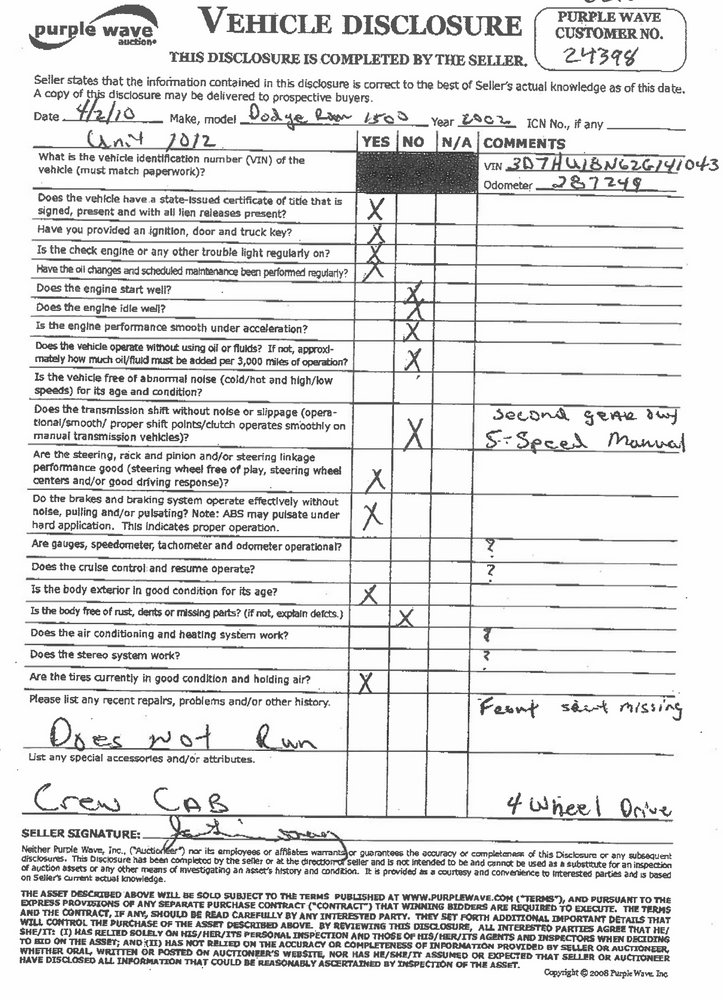 purple wave
auction®
VEHICLE DISCLOSURE
THIS DISCLOSURE IS COMPLETED BY THE SELLER.
PURPLE WAVE
CUSTOMER NO.
24398
Seller states that the information contained in this disclosure is correct to the best of Seller's actual knowledge as of this date.
A copy of this disclosure may be delivered to prospective buyers.
Date 4/2/10 Make, model Dodge Ram 1500 Year 2002 ICN No., if any
Unit 1012
YES NO N/A COMMENTS
What is the vehicle identification number (VIN) of the
vehicle (must match paperwork)?
VIN 3D7HU18N62G141043
Odometer 287249
Does the vehicle have a state-issued certificate of title that is
signed, present and with all lien releases present? X
Have you provided an ignition, door and truck key? X
Is the check engine or any other trouble light regularly on? X
Have the oil changes and scheduled maintenance been performed regularly? X
Does the engine start well? X
Does the engine idle well? X
Is the engine performance smooth under acceleration? X
Does the vehicle operate without using oil or fluids? If not, approxi-
mately how much oil/fluid must be added per 3,000 miles of operation? X
Is the vehicle free of abnormal noise (cold/hot and high/low
speeds) for its age and condition?
Does the transmission shift without noise or slippage (opera-
tional/smooth/ proper shift points/clutch operates smoothly on
manual transmission vehicles)? X
Second gear out
5-Speed Manual
Are the steering, rack and pinion and/or steering linkage
performance good (steering wheel free of play, steering wheel
centers and/or good driving response)? X
Do the brakes and braking system operate effectively without
noise, pulling and/or pulsating? Note: ABS may pulsate under
hard application. This indicates proper operation. X
Are gauges, speedometer, tachometer and odometer operational? ?
Does the cruise control and resume operate? ?
Is the body exterior in good condition for its age? X
Is the body free of rust, dents or missing parts? (if not, explain defcts.) X
Does the air conditioning and heating system work? ?
Does the stereo system work? ?
Are the tires currently in good condition and holding air? X
Please list any recent repairs, problems and/or other history.
Front seat missing
Does not Run
List any special accessories and/or attributes.
Crew CAB
4 Wheel Drive
SELLER SIGNATURE:
Neither Purple Wave, Inc., ("Auctioneer") nor its employees or affiliates warrants or guarantees the accuracy or completeness of this Disclosure or any subsequent
disclosures. This Disclosure has been completed by the seller or at the direction of seller and is not intended to be and cannot be used as a substitute for an inspection
of auction assets or any other means of investigating an asset's history and condition. It is provided as a courtesy and convenience to interested parties and is based
on Seller's current actual knowledge.
THE ASSET DESCRIBED ABOVE WILL BE SOLD SUBJECT TO THE TERMS PUBLISHED AT WWW.PURPLEWAVE.COM ("TERMS"), AND PURSUANT TO THE
EXPRESS PROVISIONS OF ANY SEPARATE PURCHASE CONTRACT ("CONTRACT") THAT WINNING BIDDERS ARE REQUIRED TO EXECUTE. THE TERMS
AND THE CONTRACT, IF ANY, SHOULD BE READ CAREFULLY BY ANY INTERESTED PARTY. THEY SET FORTH ADDITIONAL IMPORTANT DETAILS THAT
WILL CONTROL THE PURCHASE OF THE ASSET DESCRIBED ABOVE. BY REVIEWING THIS DISCLOSURE, ALL INTERESTED PARTIES AGREE THAT HE/
SHE/IT: (I) HAS RELIED SOLELY ON HIS/HER/ITS PERSONAL INSPECTION AND THOSE OF HIS/HER/ITS AGENTS AND INSPECTORS WHEN DECIDING
TO BID ON THE ASSET; AND (II) HAS NOT RELIED ON THE ACCURACY OR COMPLETENESS OF INFORMATION PROVIDED BY SELLER OR AUCTIONEER,
WHETHER ORAL, WRITTEN OR POSTED ON AUCTIONEER'S WEBSITE, NOR HAS HE/SHE/IT ASSUMED OR EXPECTED THAT SELLER OR AUCTIONEER
HAVE DISCLOSED ALL INFORMATION THAT COULD BE REASONABLY ASCERTAINED BY INSPECTION OF THE ASSET.
Copyright © 2008 Purple Wave, Inc.